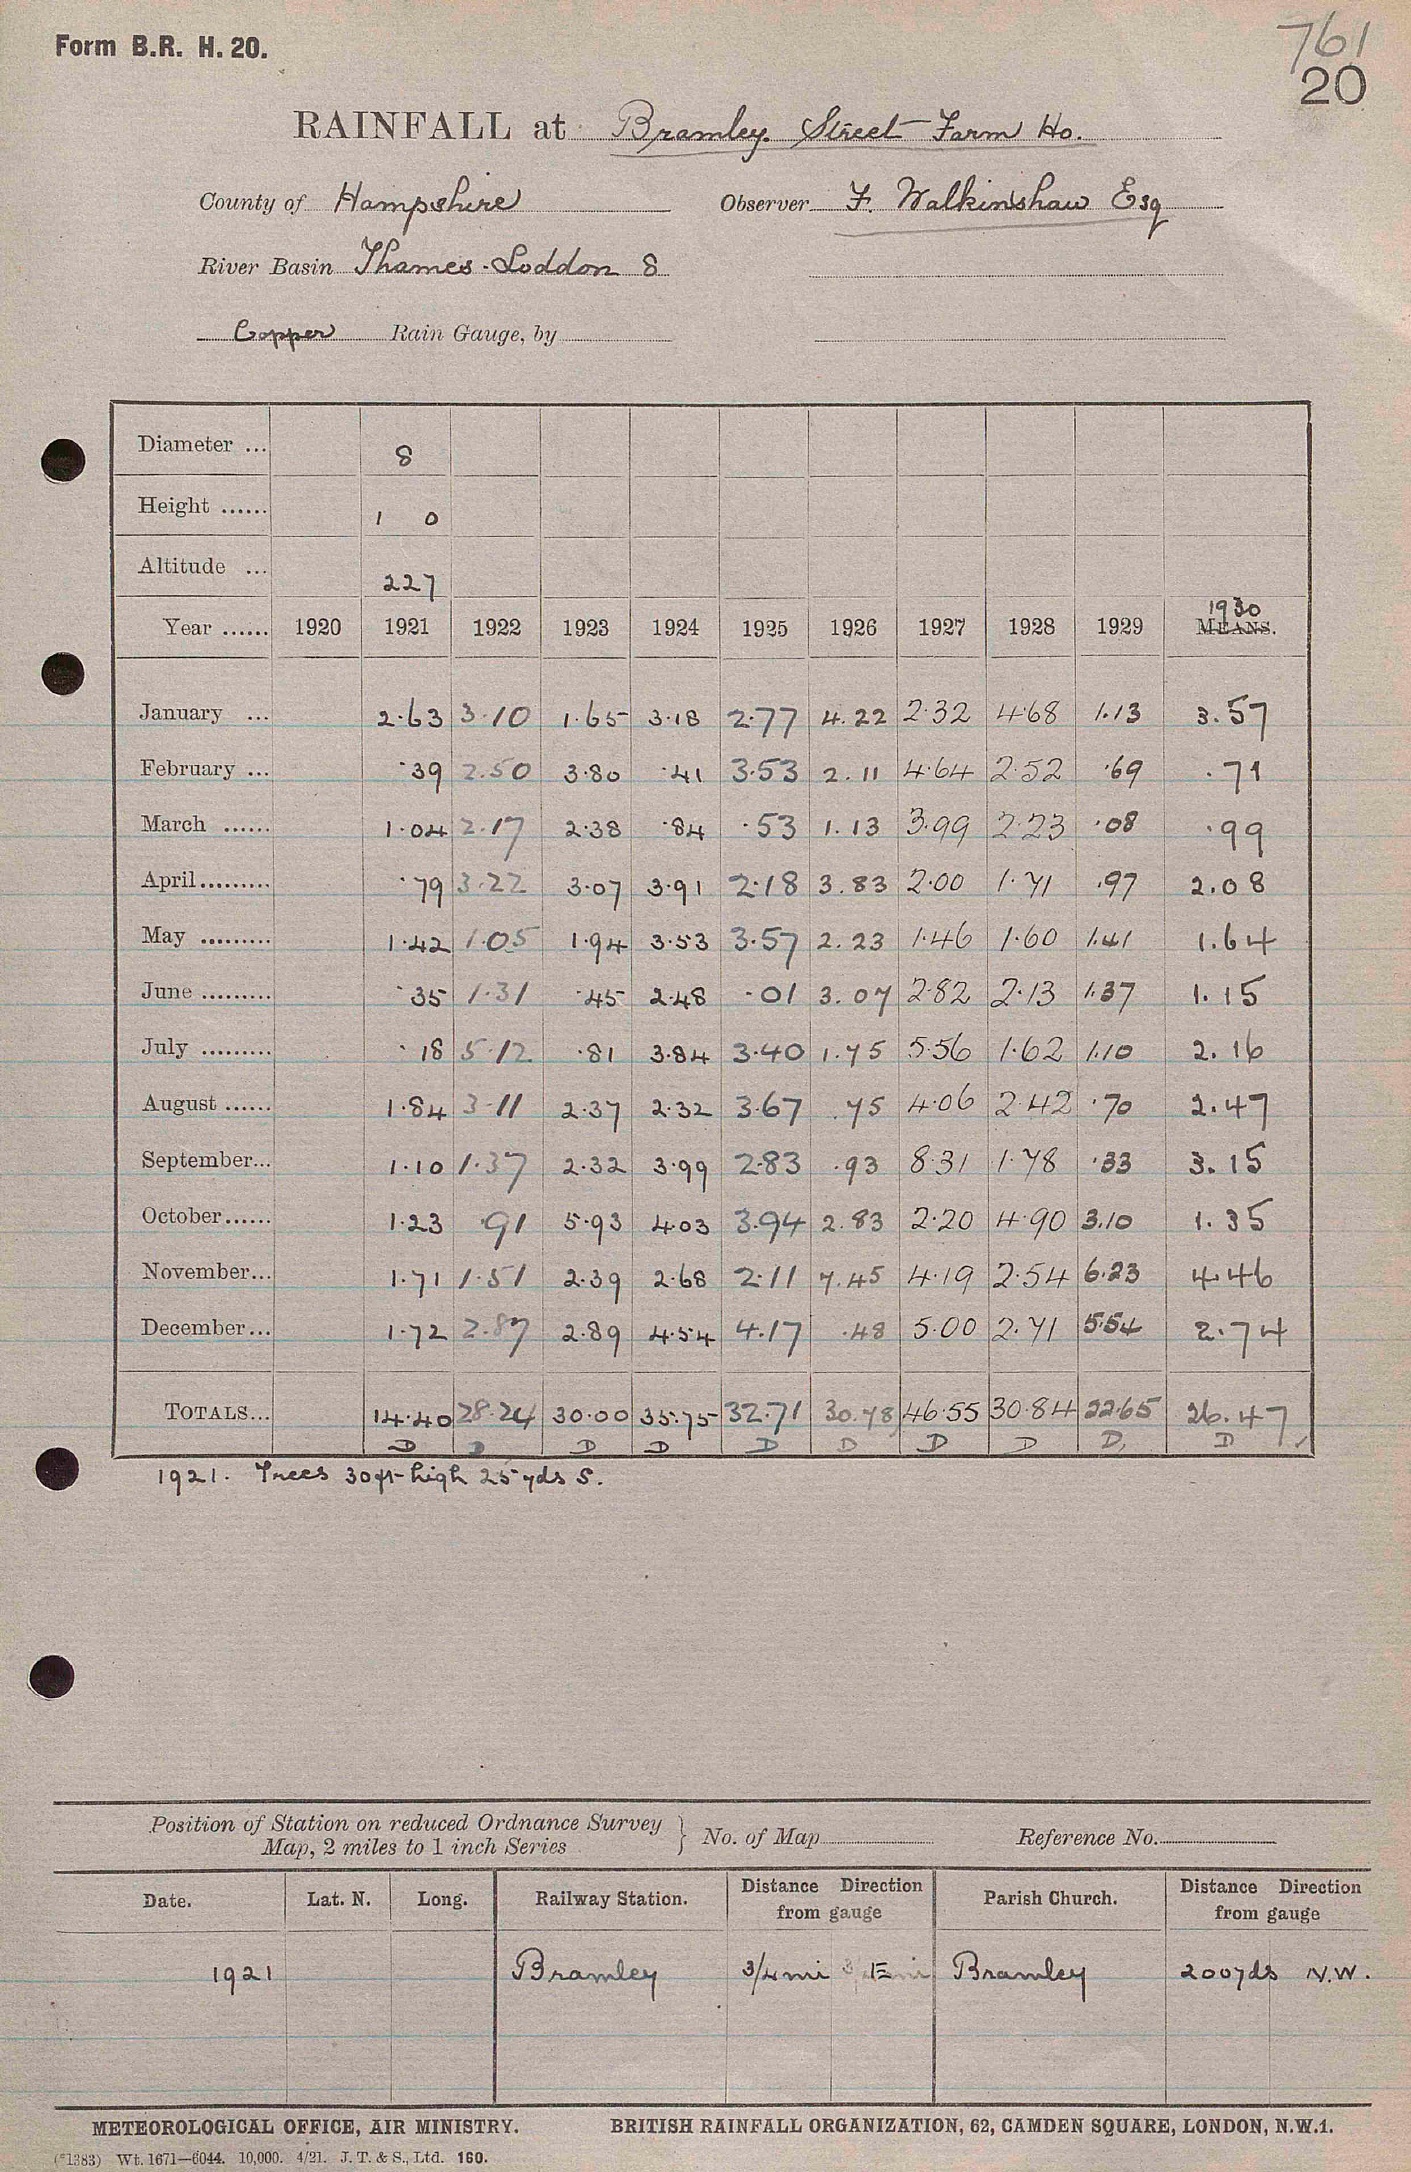 Form B.R. H. 20.
761
20
RAINFALL at Bramley Street Farm Ho.
County of Hampshire Observer F. Walkinshaw Esq
River Basin Thames - Loddon 8
Copper Rain Gauge, by
Diameter ... 8
Height ...... 1 0
Altitude ... 227
1930
Year ...... 1920 1921 1922 1923 1924 1925 1926 1927 1928 1929 MEANS.
January ... 2.63 3.10 1.65 3.18 2.77 4.22 2.32 4.68 1.13 3.57
February ... .39 2.50 3.80 .41 3.53 2.11 4.64 2.52 .69 .71
March ...... 1.04 2.17 2.38 .84 .53 1.13 3.99 2.23 .08 .99
April......... .79 3.22 3.07 3.91 2.18 3.83 2.00 1.71 .97 2.08
May ......... 1.42 1.05 1.94 3.53 3.57 2.23 1.46 1.60 1.41 1.64
June ......... .35 1.31 .45 2.48 .01 3.07 2.82 2.13 1.37 1.15
July ......... .18 5.12 .81 3.84 3.40 1.75 5.56 1.62 1.10 2.16
August ...... 1.84 3.11 2.37 2.32 3.67 .75 4.06 2.42 .70 2.47
September... 1.10 1.37 2.32 3.99 2.83 .93 8.31 1.78 .33 3.15
October...... 1.23 .91 5.93 4.03 3.94 2.83 2.20 4.90 3.10 1.35
November... 1.71 1.51 2.39 2.68 2.11 7.45 4.19 2.54 6.23 4.46
December... 1.72 2.87 2.89 4.54 4.17 .48 5.00 2.71 5.54 2.74
TOTALS... 14.40 28.24 30.00 35.75 32.71 30.78 46.55 30.84 22.65 26.47
D D D D D D D D D D
1921. Trees 30ft high 25 yds S.
Position of Station on reduced Ordnance Survey
Map, 2 miles to 1 inch Series } No. of Map Reference No.
Date. Lat. N. Long. Railway Station. Distance Direction from gauge Parish Church. Distance Direction from gauge
1921 Bramley 3/4 mi E Bramley 200yds N.W.
METEOROLOGICAL OFFICE, AIR MINISTRY. BRITISH RAINFALL ORGANIZATION, 62, CAMDEN SQUARE, LONDON, N.W.1.
(*1383) Wt. 1671—6044. 10,000. 4/21. J. T. & S., Ltd. 160.